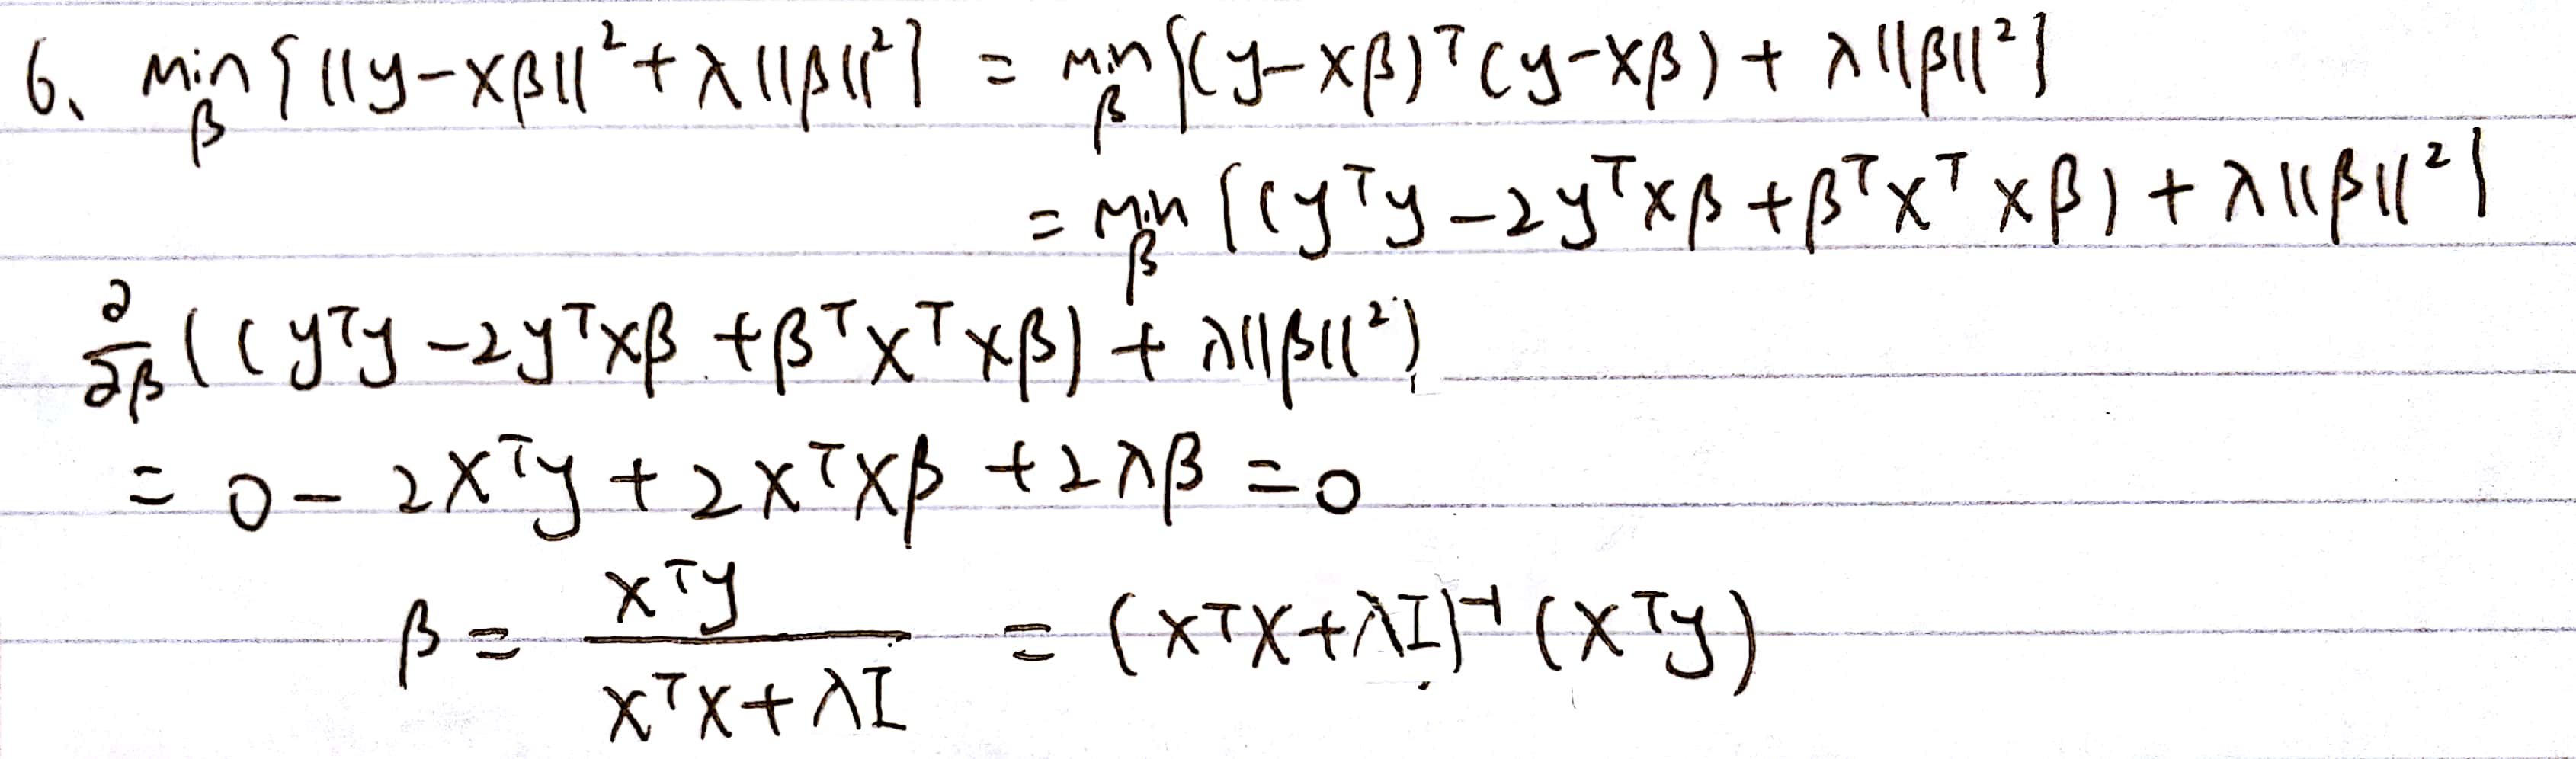 6. min_β {||y-Xβ||² + λ||β||²} = min_β {(y-Xβ)ᵀ(y-Xβ) + λ||β||²}
= min_β {(yᵀy - 2yᵀXβ + βᵀXᵀXβ) + λ||β||²}
∂/∂β ((yᵀy - 2yᵀXβ + βᵀXᵀXβ) + λ||β||²)
= 0 - 2Xᵀy + 2XᵀXβ + 2λβ = 0
β = Xᵀy / XᵀX + λI = (XᵀX + λI)⁻¹ (Xᵀy)